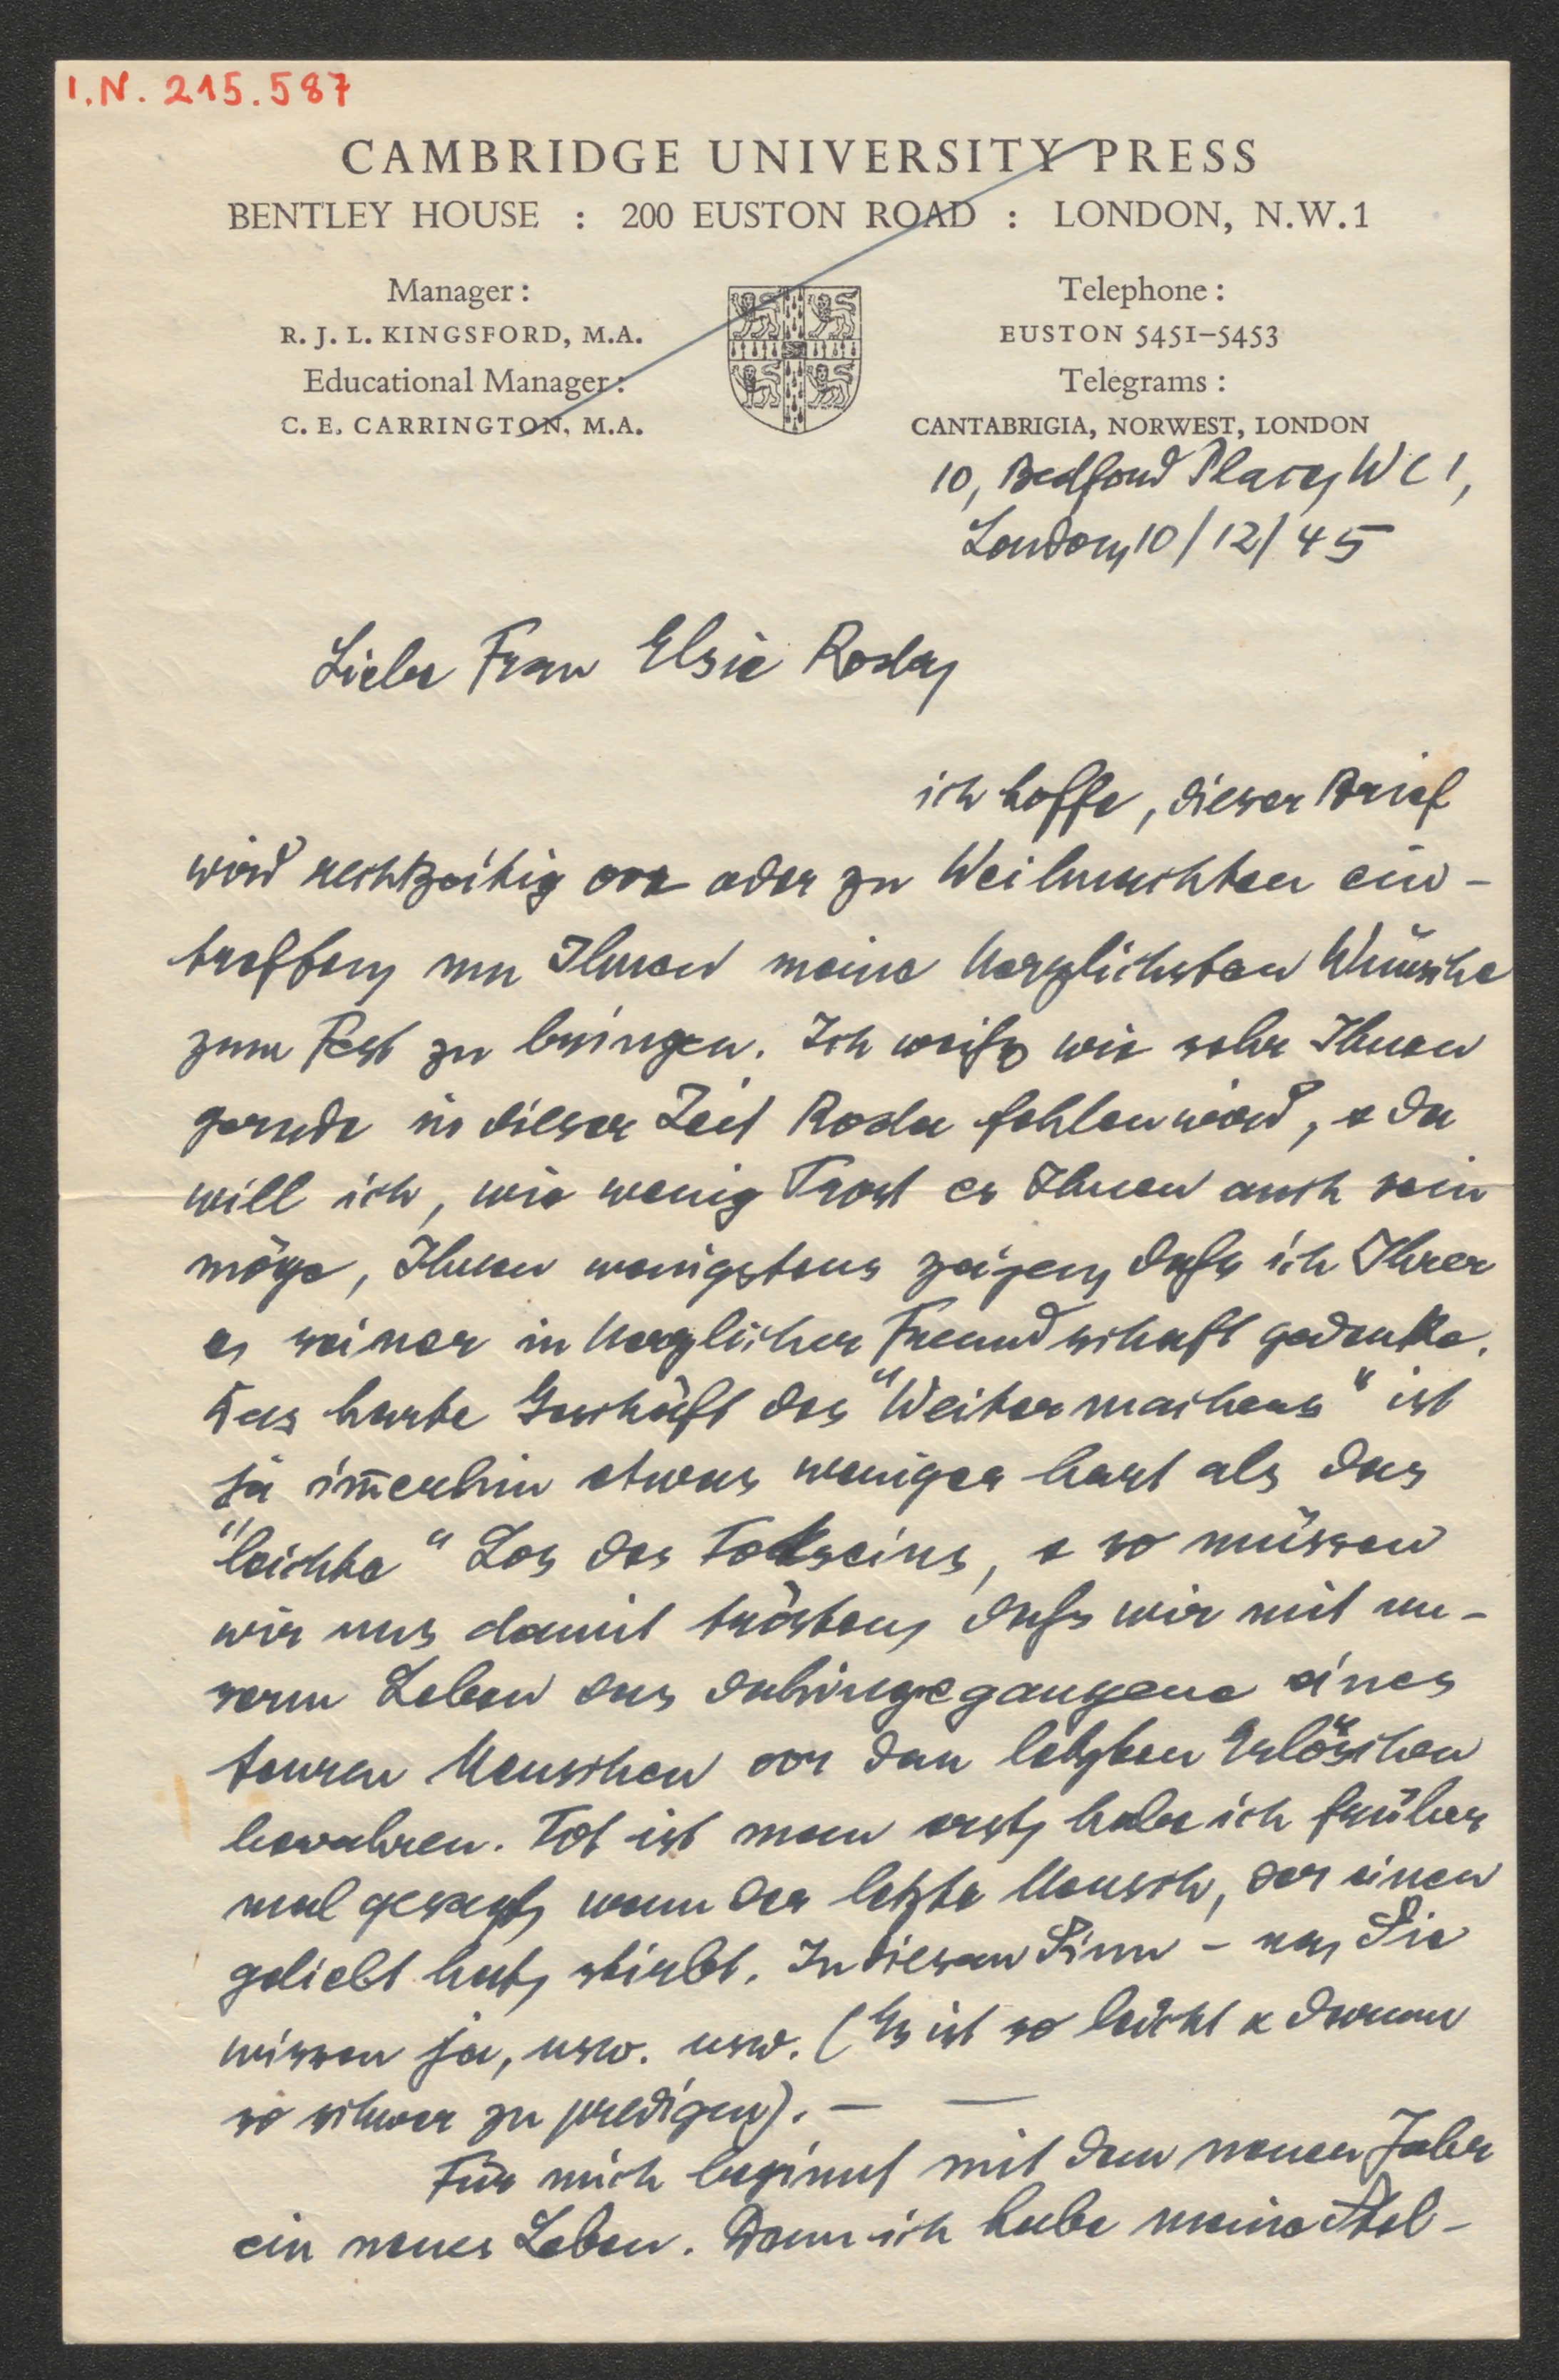 I.N. 215.587
CAMBRIDGE UNIVERSITY PRESS
BENTLEY HOUSE : 200 EUSTON ROAD : LONDON, N.W.1
Manager:
R. J. L. KINGSFORD, M.A.
Educational Manager:
C. E. CARRINGTON, M.A.
Telephone:
EUSTON 5451–5453
Telegrams:
CANTABRIGIA, NORWEST, LONDON
10, Bedford Place, WC1,
London, 10/12/45
Liebe Frau Elsie Roda,
ich hoffe, dieser Brief
wird rechtzeitig vor oder zu Weihnachten ein-
treffen, um Ihnen meine herzlichsten Wünsche
zum Fest zu bringen. Ich weiß wie sehr Ihnen
gerade in dieser Zeit Roda fehlen wird, & da
will ich, wie wenig Trost es Ihnen auch sein
möge, Ihnen wenigstens zeigen, daß ich Ihrer
& seiner in herzlicher Freundschaft gedenke.
Das harte Geschäft des "Weitermachens" ist
ja im̅erhin etwas weniger hart als das
"leichte" Los des Totseins, & so müssen
wir uns damit trösten, daß wir mit un-
serm Leben das dahingegangene eines
teuren Menschen vor dem letzten Erlöschen
bewahren. Tot ist man erst, habe ich früher
mal gesagt, wenn der letzte Mensch, der einen
geliebt hat, stirbt. In diesem Sinn – na, Sie
wissen ja, usw. usw. (Es ist so leicht & darum
so schwer zu predigen). — —
Für mich beginnt mit dem neuen Jahr
ein neues Leben. Denn ich habe meine Stel-